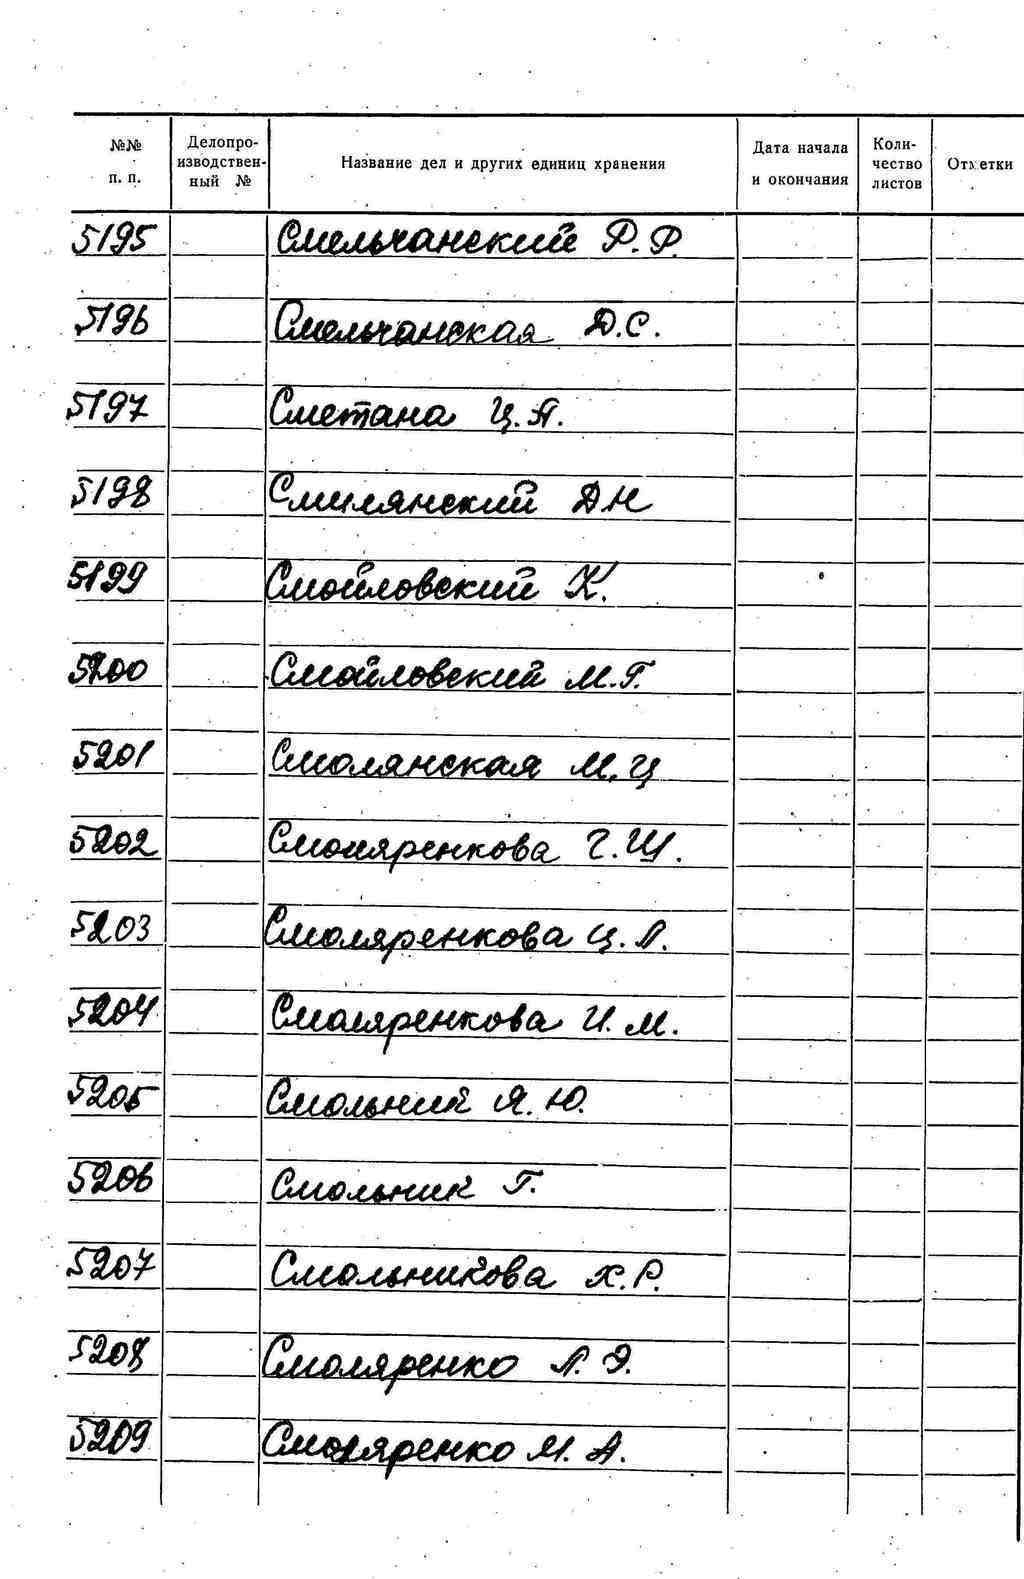 №№ п. п. Делопро-изводствен-ный № Название дел и других единиц хранения Дата начала и окончания Коли-чество листов Отметки
5195 Смельчанский Р. Р.
5196 Смельчанская Д. С.
5197 Сметана Ц. П.
5198 Смилянский Д Н
5199 Смойловский К.
5200 Смойловский М. Г.
5201 Смолянская М. Ц
5202 Смоляренкова Г. Ш.
5203 Смоляренкова Ц. Л.
5204 Смоляренкова И. М.
5205 Смольник Я. Ю.
5206 Смольник Г.
5207 Смольникова Х. Р.
5208 Смоляренко Л. Э.
5209 Смоляренко М. А.